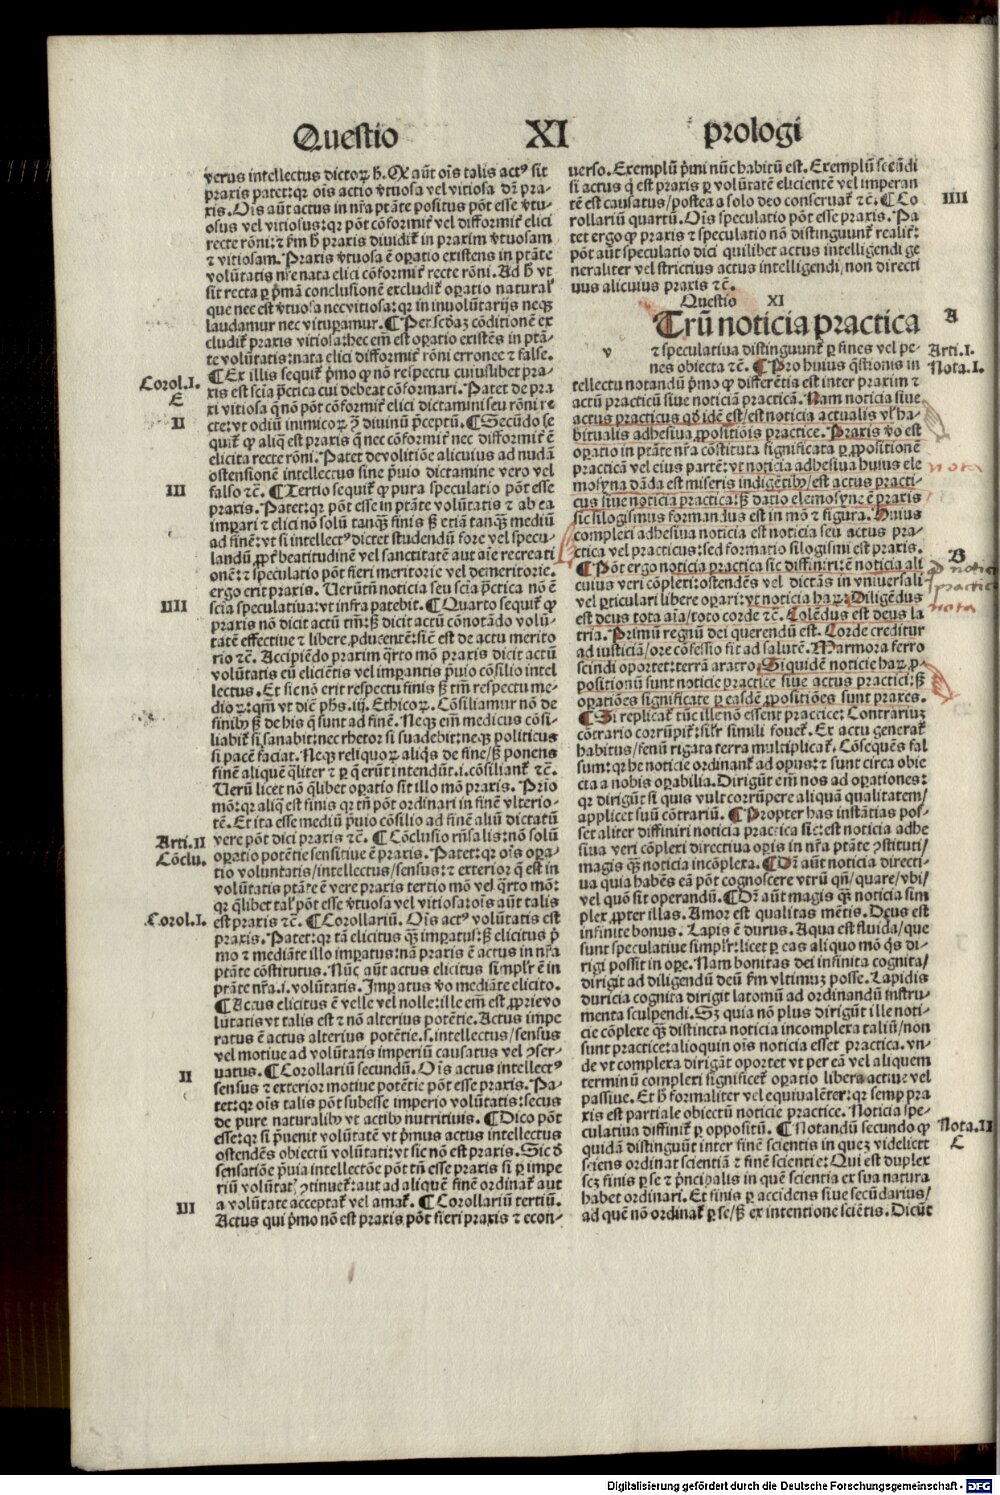 Questio XI prologi
verus intellectus dictoꝝ ħ. Ꝙ aūt oīs talis actꝰ sit
praxis patet: qꝛ oīs actio v̓tuosa vel vitiosa dr̄ pra-
xis. Oīs aūt actus in nr̄a ptāte positus pōt esse v̓tu-
osus vel vitiosus: qꝛ pōt cōformit̓ vel difformit̓ elici
recte rōni: ⁊ ẜm ħ praxis diuidit̓ in praxim v̓tuosam
⁊ vitiosam. Praxis v̓tuosa ē oꝑatio existens in ptāte
volūtatis nr̄e nata elici cōformit̓ recte rōni. Ad ħ vt
sit recta ꝑ pͥmā conclusionē excludit̓ oꝑatio natural̓
que nec est v̓tuosa nec vitiosa: qꝛ in inuolūtarijs neqꝫ
laudamur nec vituꝑamur. ¶ Per scḋaꝫ cōditionē ex
cludit̓ praxis vitiosa: hec em̄ est oꝑatio existēs in ptā-
te volūtatis: nata elici difformit̓ rōni erronee ⁊ false.
Corol. I.
E
¶ Ex illis sequit̓ pͥmo ꝙ nō respectu cuiuslibet pra-
xis est scīa pͣctica cui debeat cōformari. Patet de pra
xi vitiosa q̄ nō pōt cōformit̓ elici dictamini seu rōni re
II
cte: vt odiū inimicoꝝ ꝯͣ diuinū p̄ceptū. ¶ Secūdo se
quit̓ ꝙ aliq̄ est praxis q̄ nec cōformit̓ nec difformit̓ ē
elicita recte rōni. Patet de volitiōe alicuius ad nudā
ostensionē intellectus sine p̄uio dictamine vero vel
III
falso ⁊c̄. ¶ Tertio sequit̓ ꝙ pura speculatio pōt esse
praxis. Patet: qꝛ pōt esse in ptāte volūtatis ⁊ ab ea
imꝑari ⁊ elici nō solū tanqꝫ finis sꝫ etiā tanqꝫ mediū
ad finē: vt si intellectꝰ dictet studendū fore vel specu-
landū ꝓpt̓ beatitudinē vel sanctitatē aut aīe recreati
onē: ⁊ speculatio pōt fieri meritorie vel demeritorie.
ergo erit praxis. Uerūtn̄ noticia seu scīa pͣctica nō ē
IIII
scīa speculatiua: vt infra patebit. ¶ Quarto sequit̓ ꝙ
praxis nō dicit actū tm̄: sꝫ dicit actū cōnotādo volū-
tatē effectiue ⁊ libere ꝓducentē: sic̄ est de actu merito
rio ⁊c̄. Accipiēdo praxim q̄rto mō praxis dicit actū
volūtatis eū elicientis vel imꝑantis p̄uio cōsilio intel
lectus. Et sic nō erit respectu finis sꝫ tm̄ respectu me-
dioꝝ: qm̄ vt dic̄ ph̄s .iij. Ethicoꝝ. Cōsiliamur nō de
finibꝰ sꝫ de his q̄ sunt ad finē. Neqꝫ em̄ medicus cōsi-
liabit̓ si sanabit: nec rhetor si suadebit: neqꝫ politicus
si pacē faciat. Neqꝫ reliquoꝝ aliqͥs de fine/ sꝫ ponens
finē aliquē qͣliter ⁊ ꝑ q̄ erūt intendūt .i. cōsiliant̓ ⁊c̄.
Uerū licet nō qͥlibet oꝑatio sit illo mō praxis. Prio
mō: qꝛ aliqͥ est finis qꝛ tn̄ pōt ordinari in finē vlterio-
tē. Et ita esse mediū p̄uio cōsilio ad finē aliū dictatū
Arti. II
vere pōt dici praxis ⁊c̄. ¶ Cōclusio rn̄salis: nō solū
Cōclu.
oꝑatio potētie sensitiue ē praxis. Patet: qꝛ oīs oꝑa-
tio voluntatis/ intellectus/ sensus: ⁊ exterior q̄ est in
volūtatis ptāte ē vere praxis tertio mō vel q̄rto mō:
qꝛ q̄libet tal̓ pōt esse v̓tuosa vel vitiosa: oīs aūt talis
Corol. I.
est praxis ⁊c̄. ¶ Corollariū. Oīs actꝰ volūtatis est
praxis. Patet: qꝛ tā elicitus qꝫ imꝑatus: sꝫ elicitus pͥ
mo ⁊ mediāte illo imꝑatus: nā praxis ē actus in nr̄a
ptāte cōstitutus. Nūc aūt actus elicitus simplr̄ ē in
ptāte nr̄a .i. volūtatis. Imꝑatus v̓o mediāte elicito.
¶ Actus elicitus ē velle vel nolle: ille em̄ est ꝓprie vo
lūtatis vt talis est ⁊ nō alterius potētie. Actus impe
ratus ē actus alterius potētie .s. intellectus/ sensus
vel motiue ad volūtatis imperiū causatus vel ꝯser-
II
uatus. ¶ Corollariū secundū. Oīs actus intellectꝰ
sensus ⁊ exterior motiue potētie pōt esse praxis. Pa-
tet: qꝛ oīs talis pōt subesse imperio volūtatis: secus
de pure naturalibꝰ vt actibꝰ nutritiuis. ¶ Dico pōt
esse: qꝛ si p̄uenit volūtatē vt pͥmus actus intellectus
ostendēs obiectū volūtati: vt sic nō est praxis. Sic d̓
sensatiōe p̄uia intellectiōe pōt tn̄ esse praxis si ꝑ impe
riū volūtat̓ ꝯtinuet̓: aut ad aliquē finē ordinat̓ aut
III
a volūtate acceptat̓ vel amat̓. ¶ Corollariū tertiū.
Actus qui pͥmo nō est praxis pōt fieri praxis ⁊ econ-
uerso. Exemplū pͥmi nūc habitū est. Exemplū secūdi
si actus q̄ est praxis ꝑ volūtatē elicientē vel imperan
IIII
tē est causatus/ postea a solo deo conseruat̓ ⁊c̄. ¶ Co
rollariū quartū. Oīs speculatio pōt esse praxis. Pa
tet ergo ꝙ praxis ⁊ speculatio nō distinguunt̓ realit̓:
pōt aūt speculatio dici quilibet actus intelligendi ge
neraliter vel strictius actus intelligendi/ non directi
uus alicuius praxis ⁊c̄.
Questio XI
A
Trū noticia practica
v
⁊ speculatiua distinguunt̓ ꝑ fines vel pe-
Arti. I.
nes obiecta ⁊c̄. ¶ Pro huius qōnis in
Nota. I.
tellectu notandū pͥmo ꝙ differētia est inter praxim ⁊
actū practicū siue noticiā practicā. Nam noticia siue
actus practicus qd̓ idē est/ est noticia actualis vl̓ ha-
bitualis adhesiua ꝓpositiōis practice. Praxis v̓o est
oꝑatio in ptāte nr̄a cōstituta significata ꝑ ꝓpositionē
practicā vel eius partē: vt noticia adhesiua huius ele
nota
mosyna dāda est miseris indigētibꝰ/ est actus practi-
cus siue noticia practica: sꝫ datio elemosyne ē praxis
sic silogismus formandus est in mō ⁊ figura. Huius
complexi adhesiua noticia est noticia seu actus pra-
ctica vel practicus: sed formatio silogismi est praxis.
B
¶ Pōt ergo noticia practica sic diffiniri: ē noticia ali
cuius veri cōplexi: ostendēs vel dictās in vniuersali
practica
vel ꝑticulari libere oꝑari: vt noticia haꝝ: Diligēdus
nota
est deus tota aīa/ toto corde ⁊c̄. Colēdus est deus la
tria. Primū regnū dei querendū est. Corde creditur
ad iusticiā/ ore cōfessio fit ad salutē. Marmora ferro
scindi oportet: terrā aratro. Siquidē noticie haꝝ ꝓ-
positionū sunt noticie practice siue actus practici: sꝫ
oꝑatiōes significate ꝑ easdē ꝓpositiōes sunt praxes.
¶ Si replicat̓ tūc ille nō essent practice: Contrariuꝫ
cōtrario corrūpit̓: sil̓r simili fouet̓. Ex actu generat̓
habitus/ fenū rigata terra multiplicat̓. Cōsequēs fal
sum: qꝛ he noticie ordinant̓ ad opus: ⁊ sunt circa obie
cta a nobis oꝑabilia. Dirigūt em̄ nos ad oꝑationes:
qꝛ dirigūt si quis vult corrūpere aliquā qualitatem/
applicet suū cōtrariū. ¶ Propter has instātias pos-
set aliter diffiniri noticia practica sic: est noticia adhe
siua veri cōplexi directiua oꝑis in nr̄a ptāte ꝯstituti/
magis qꝫ noticia incōplexa. ¶ Dr̄ aūt noticia directi-
ua quia habēs eā pōt cognoscere vtrū qn̄/ quare/ vbi/
vel quō sit operandū. ¶ Dr̄ aūt magis qꝫ noticia sim
plex ꝓpter illas. Amor est qualitas mētis. Deus est
infinite bonus. Lapis ē durus. Aqua est fluida/ que
sunt speculatiue simplr̄: licet ꝑ eas aliquo mō qͥs di-
rigi possit in oꝑe. Nam bonitas dei infinita cognita/
dirigit ad diligendū deū ẜm vltimuꝫ posse. Lapidis
duricia cognita dirigit latomū ad ordinandū instru-
menta sculpendi. Sꝫ quia nō plus dirigūt ille noti-
cie cōplexe qꝫ distincta noticia incomplexa taliū/ non
sunt practice: alioquin oīs noticia esset practica. vn-
de vt complexa dirigāt oportet vt per eā vel aliquem
terminū complexi significet̓ oꝑatio libera actiue vel
passiue. Et ħ formaliter vel equiualēter: qꝛ semꝑ pra
xis est partiale obiectū noticie practice. Noticia spe-
culatiua diffinit̓ ꝑ oppositū. ¶ Notandū secundo ꝙ
Nota. II
quidā distinguūt inter finē scientis in queꝫ videlicet
C
sciens ordinat scientiā ⁊ finē scientie: Qui est duplex
scꝫ finis ꝑ se ⁊ pͥncipalis in quē scientia ex sua natura
habet ordinari. Et finis ꝑ accidens siue secūdarius/
ad quē nō ordinat̓ ꝑ se/ sꝫ ex intentione sciētis. Dicūt
Digitalisierung gefördert durch die Deutsche Forschungsgemeinschaft - DFG